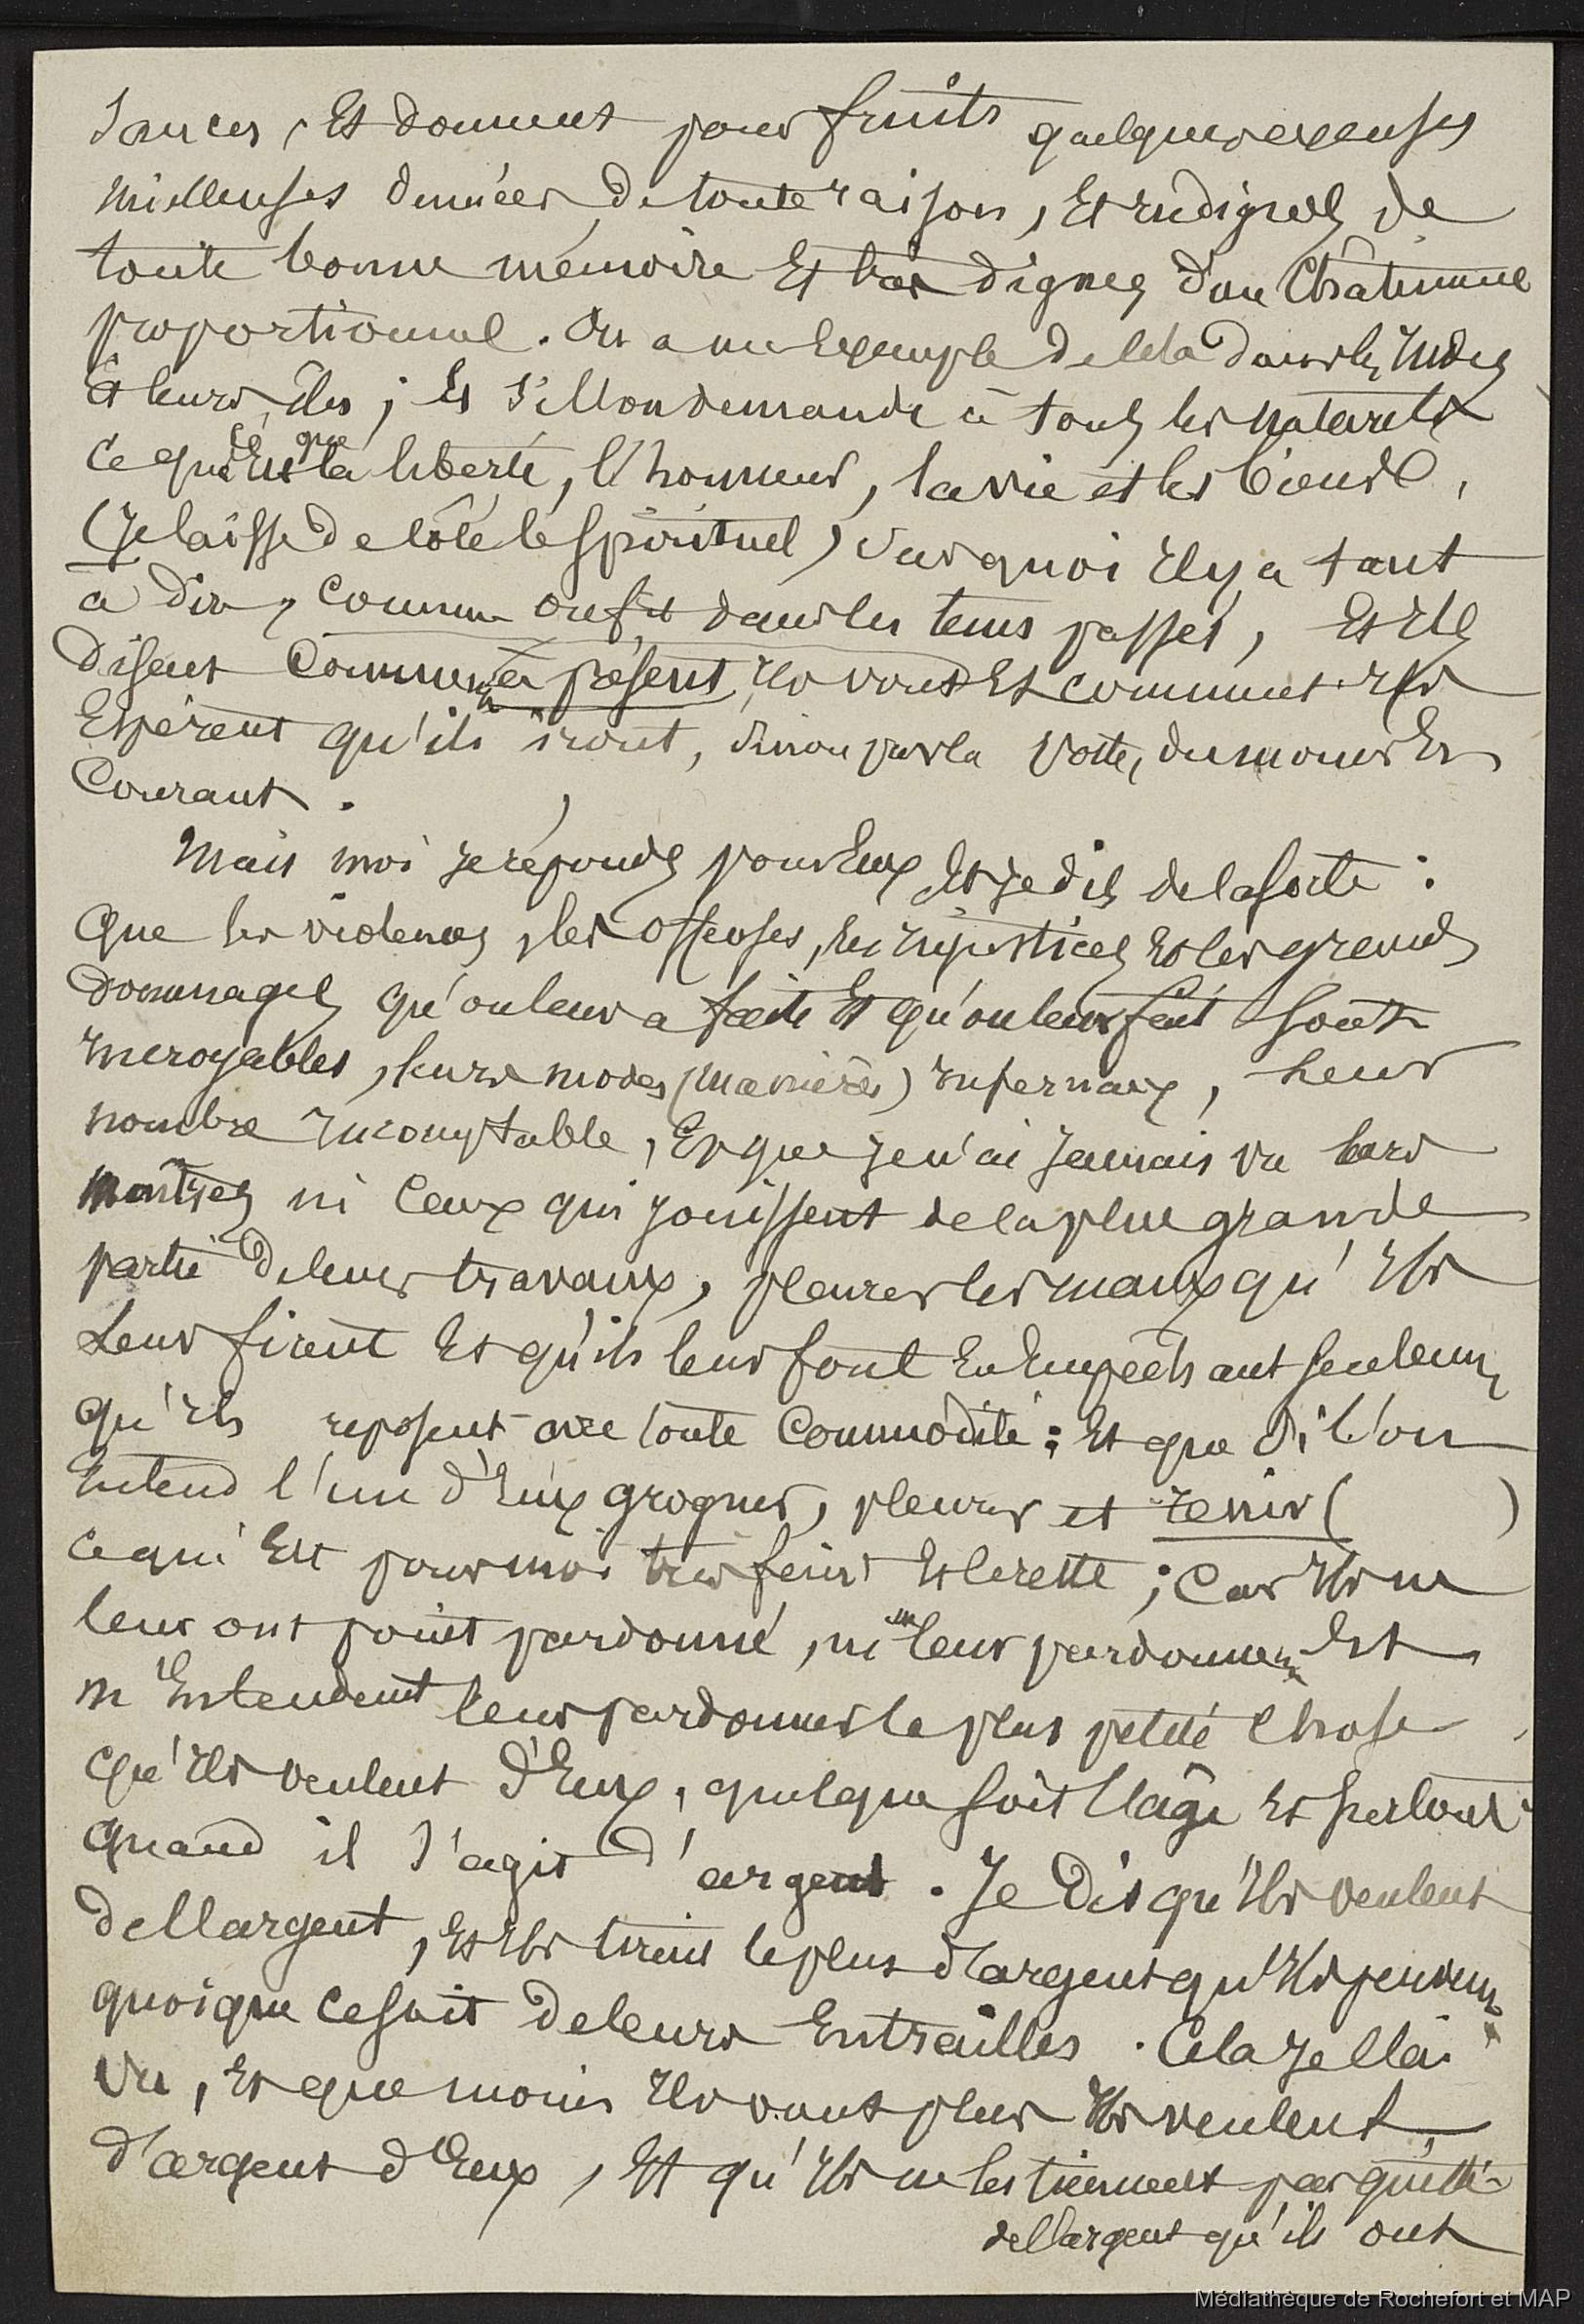 sances, Et donnent pour fruits quelques excuses
mielleuses dénuées de toute raison, Et indignes de
toute bonne mémoire Et très dignes d'un Châtiment
proportionnel. On a un Exemple de cela dans les Indes
Et leurs îles ; Et s'il l'on demande à tous les naturels
ce qu'Est la liberté, l'honneur, la vie et les biens,
ce que
(Je laisse de côté le spirituel) sur quoi Il y a tant
à dire, comme on fit dans les tems passés, Et Ils
disent comment à présent Ils vont Et comment Ils
Espèrent qu'ils iront, sinon par la poste, du moins En
Courant.
Mais moi je réponds pour Eux Et je dis de la sorte :
Que les violences, les offenses, les injustices Et les grands
dommages qu'on leur a faits Et qu'on leur fait sont
Incroyables, leurs modes (manières) Infernaux, leur
nombre Incomptable, Et que je n'ai jamais vu leurs
maîtres ni Ceux qui jouissent de la plus grande
partie de leurs travaux, pleurer les maux qu'Ils
Leur firent Et qu'ils leur font En Empêchant seulement
qu'Ils reposent avec toute Commodité : Et que si l'on
Entend l'un d'Eux grogner, pleurer et ( )
ce qui Est pour moi Et le reste ; Car Ils ne
leur ont point pardonné, ni ne leur pardonnent Et
n'Entendent leur pardonner la plus petite Chose
qu'Ils veulent d'Eux, quelque soit l'âge Et surtout
quand il s'agit d'argent. Je Dis qu'Ils veulent
de l'argent, Et Ils tirent le plus d'argent qu'Ils peuvent
quoique ce soit de leurs Entrailles. Cela je l'ai
vu, Et que moins Ils vont plus Ils veulent
d'argent d'Eux, Et qu'Ils ne les tiennent pas quitte
de l'argent qu'ils ont
Médiathèque de Rochefort et MAP